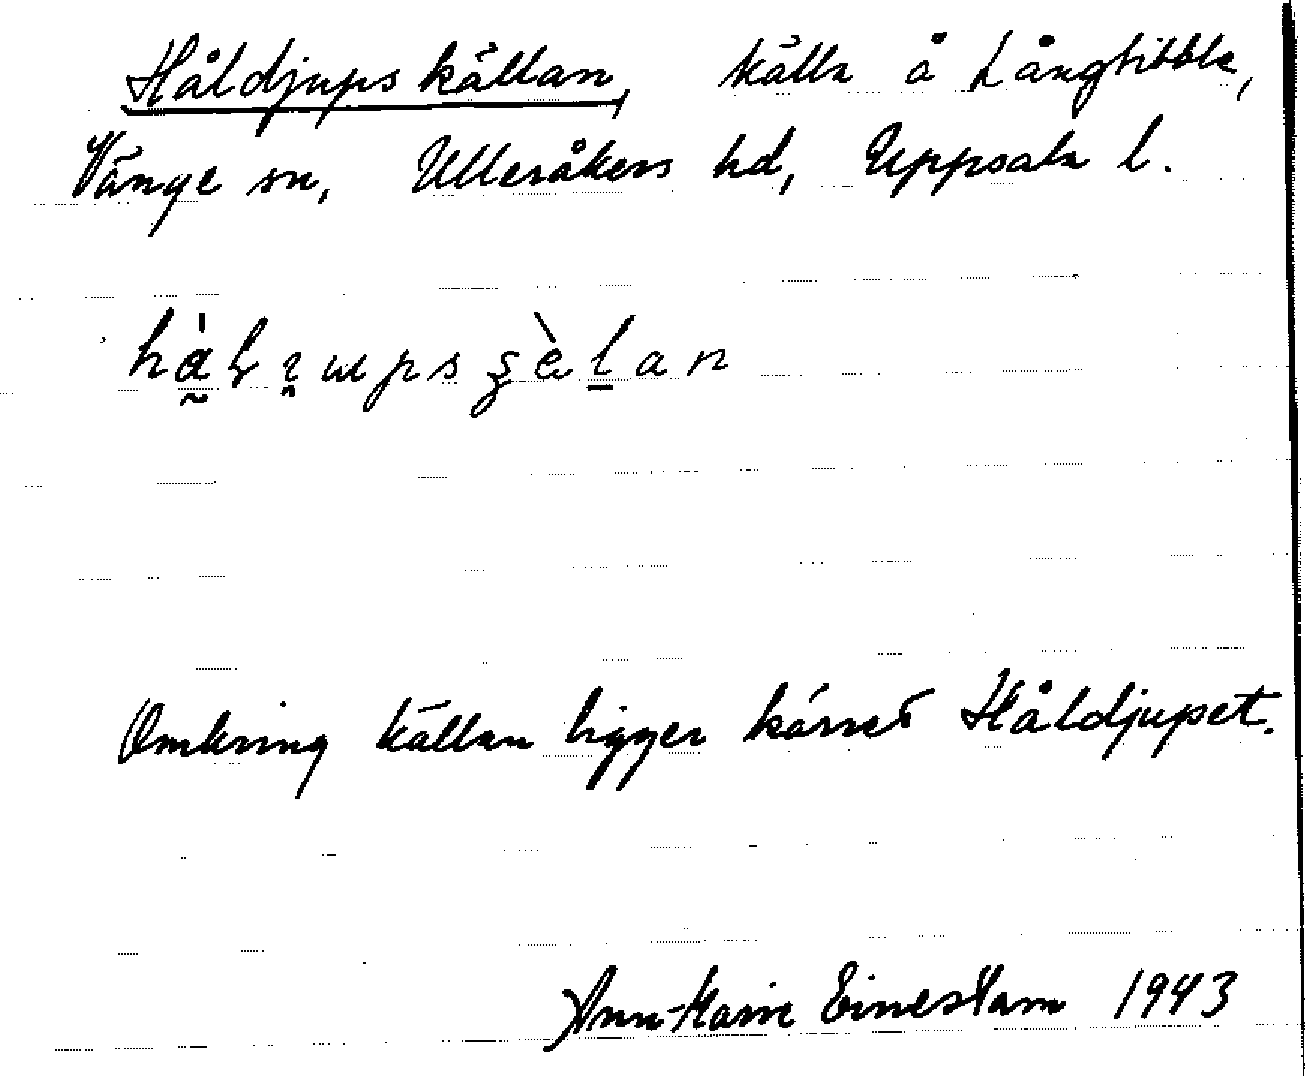 Håldjupskällan, källa å Långtibble,
Vänge sn, Ulleråkers hd, Uppsala l.
Omkring källan ligger kärret Håldjupet.
Ann-Marie Einestam 1943